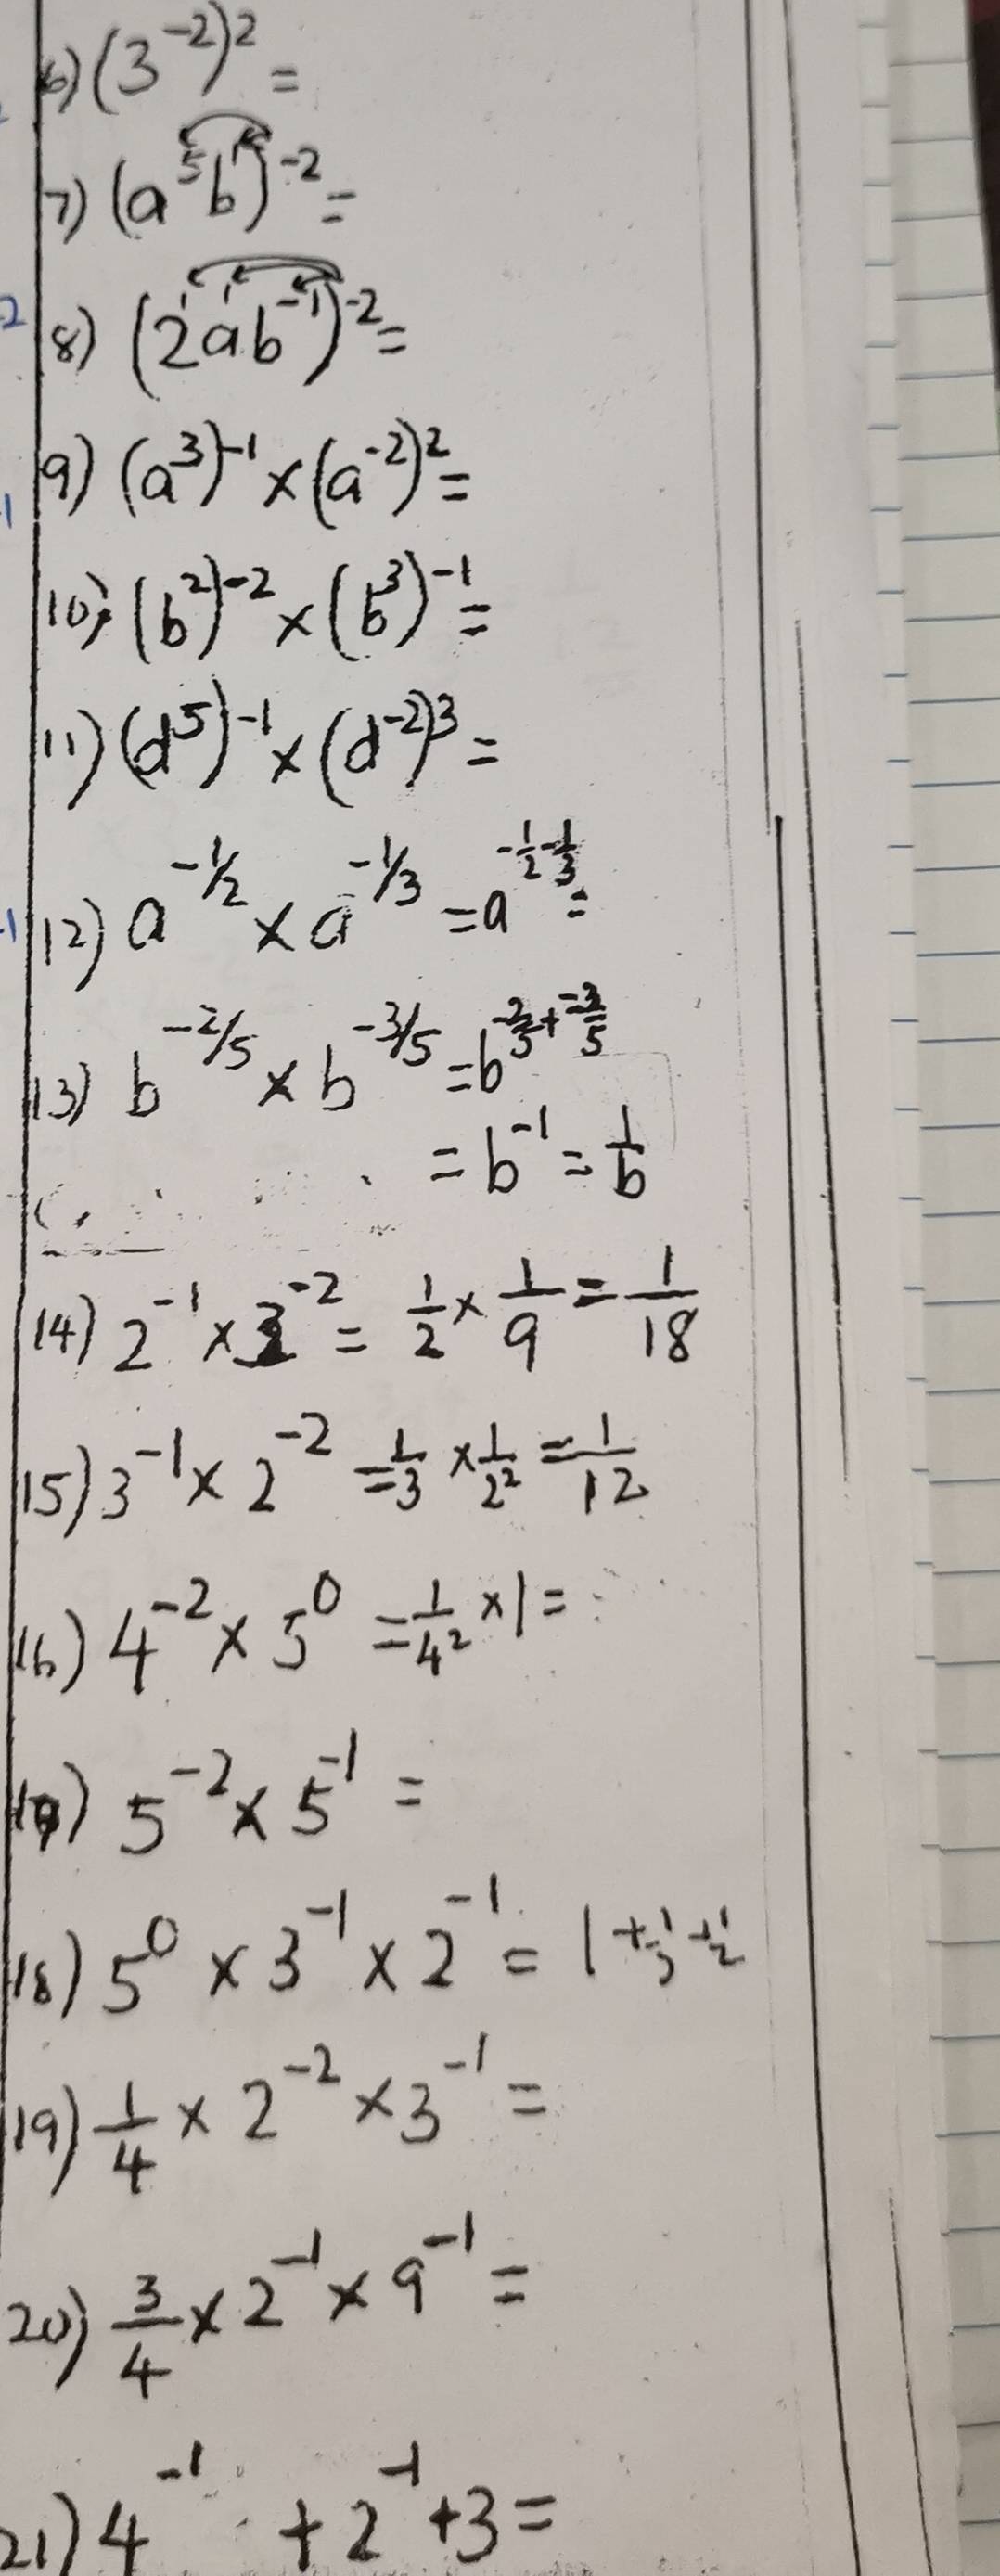 6) (3^-2)^2 =
7) (a^5 b^1)^-2 =
8) (2^1 a^1 b^-1)^-2 =
9) (a^3)^-1 × (a^-2)^2 =
10) (b^2)^-2 × (b^3)^-1 =
11) (d^5)^-1 × (d^-2)^3 =
12) a^-1/2 × a^-1/3 = a^-1/2-1/3 =
13) b^-2/5 × b^-3/5 = b^-2/5+-3/5
= b^-1 = 1/b
14) 2^-1 × 3^-2 = 1/2 × 1/9 = 1/18
15) 3^-1 × 2^-2 = 1/3 × 1/2^2 = 1/12
16) 4^-2 × 5^0 = 1/4^2 × 1 =
17) 5^-2 × 5^-1 =
18) 5^0 × 3^-1 × 2^-1 = 1 + 1/3 + 1/2
19) 1/4 × 2^-2 × 3^-1 =
20) 3/4 × 2^-1 × 9^-1 =
21) 4^-1 + 2^-1 + 3 =